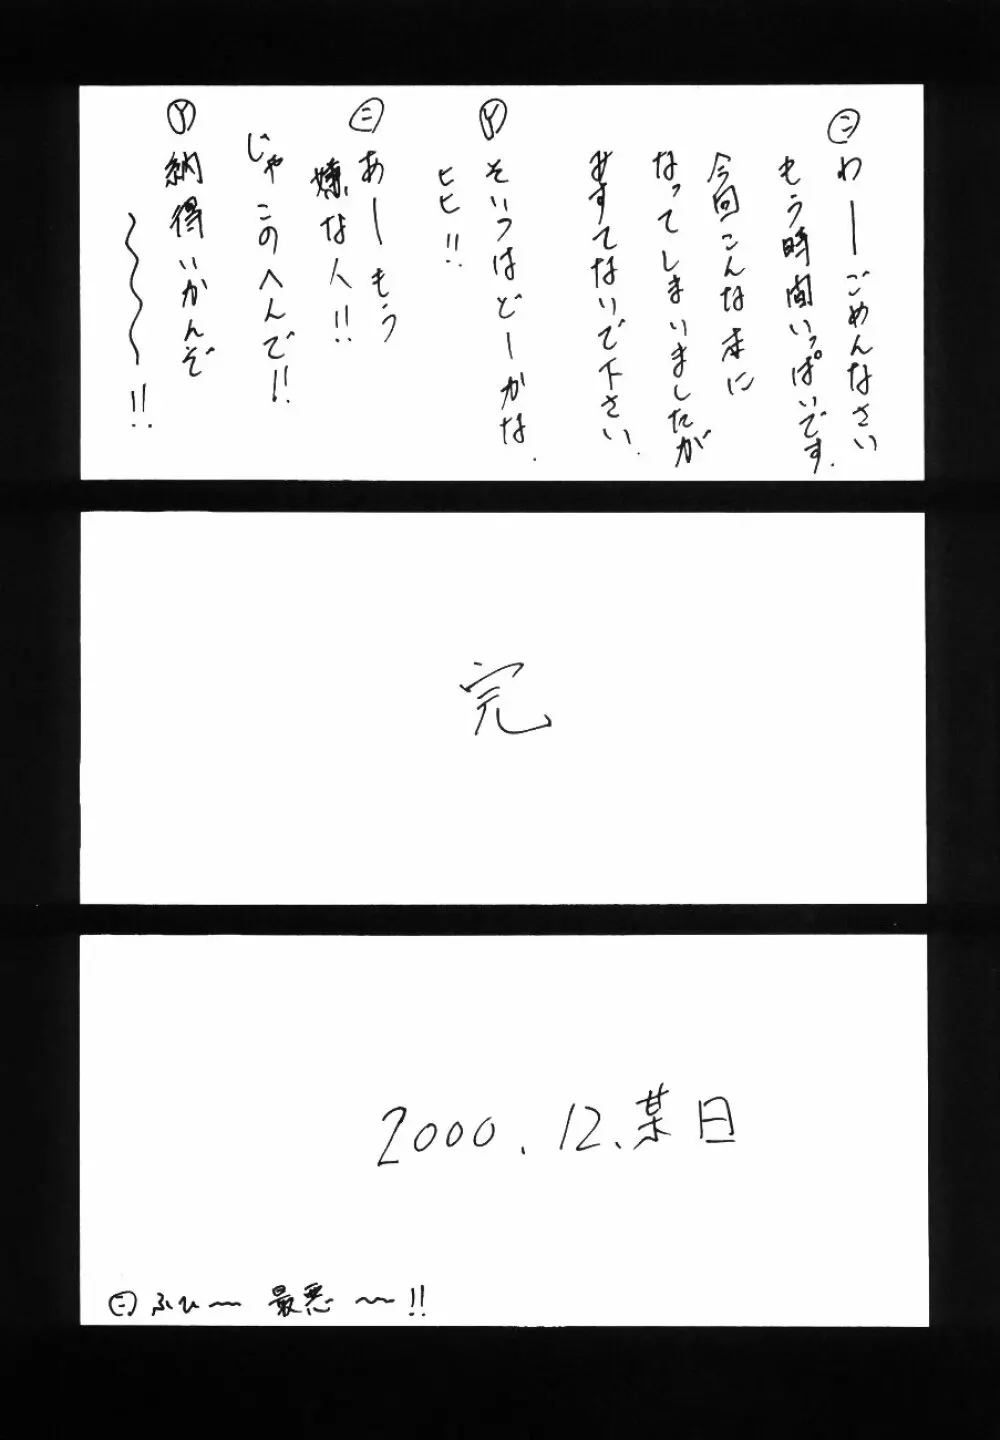 ㊁ わーーごめんなさい
もう時間いっぱいです.
今回こんな本に
なってしまいましたが
みすてないで下さい.
Ⓨ そいつはどーかな.
ヒヒ!!
㊁ あーもう
嫌な人!!
じゃこのへんで!!
Ⓨ 納得いかんぞ
〜〜〜〜!!
完
2000.12.某日
㊁ ふひ〜 最悪〜!!